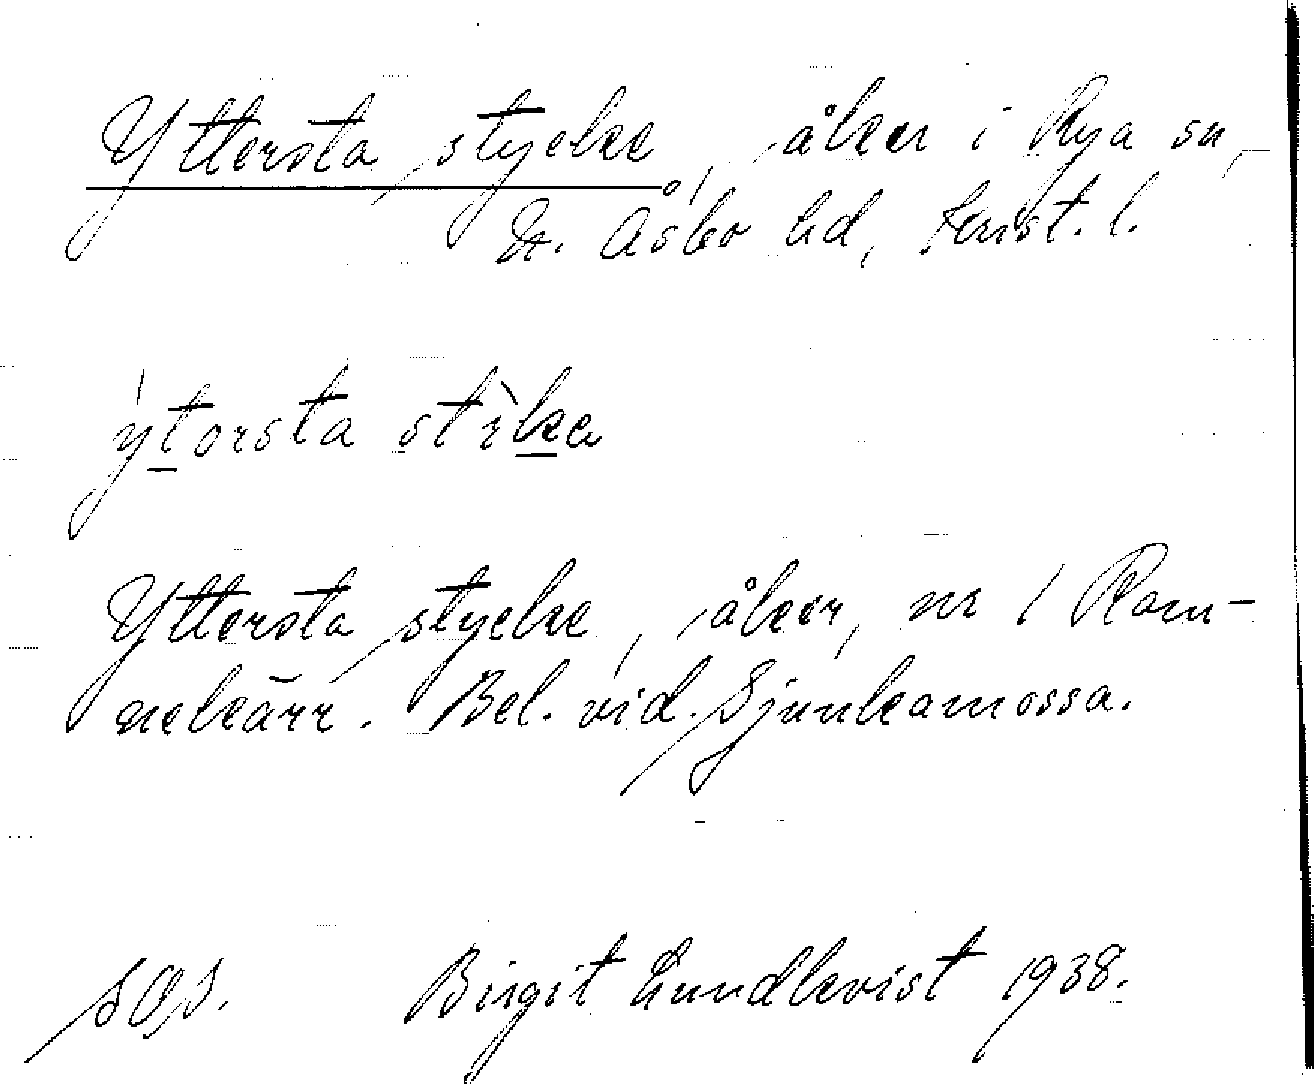 Yttersta stycke, åker i Rya sn,
N. Åsbo hd, Krist. l.
ýtorsta stìke
Yttersta stycke, åker, nr 1 Ram-
nekärr. Bel. vid Sjunkamossa.
SOI. Birgit Lundkvist 1938.